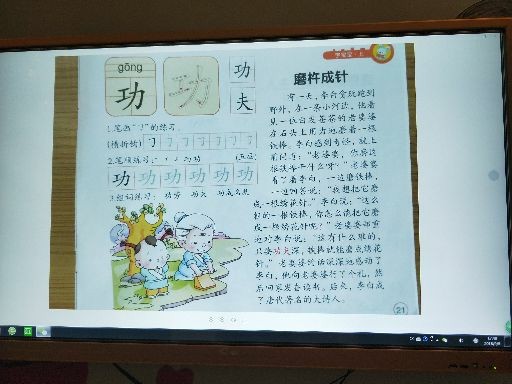 学前宝·上
gōng
功
功
功
夫
1.笔画"㇆"的练习。
(横折钩)
2.笔顺练习:
(五画)
功 功 功 功 功 功
3.组词练习: 功劳 功夫 功成名就
磨杵成针
有一天,李白贪玩跑到
野外,在一条小河边,他看
见一位白发苍苍的老婆婆
在石头上用力地磨着一根
铁棒。李白感到奇怪,就上
前问道:"老婆婆,你磨这
根铁棒干什么呀?"老婆婆
看了看李白,一边磨铁棒,
一边回答说:"我想把它磨
成一根绣花针。"李白说:"这么
粗的一根铁棒,你怎么能把它磨
成一根绣花针呢?"老婆婆郑重
地对李白说:"这有什么难的,
只要功夫深,铁棒就能磨成绣花
针。"老婆婆的话深深地感动了
李白,他向老婆婆行了个礼,然
后回家发奋读书。后来,李白成
了唐代著名的大诗人。
21